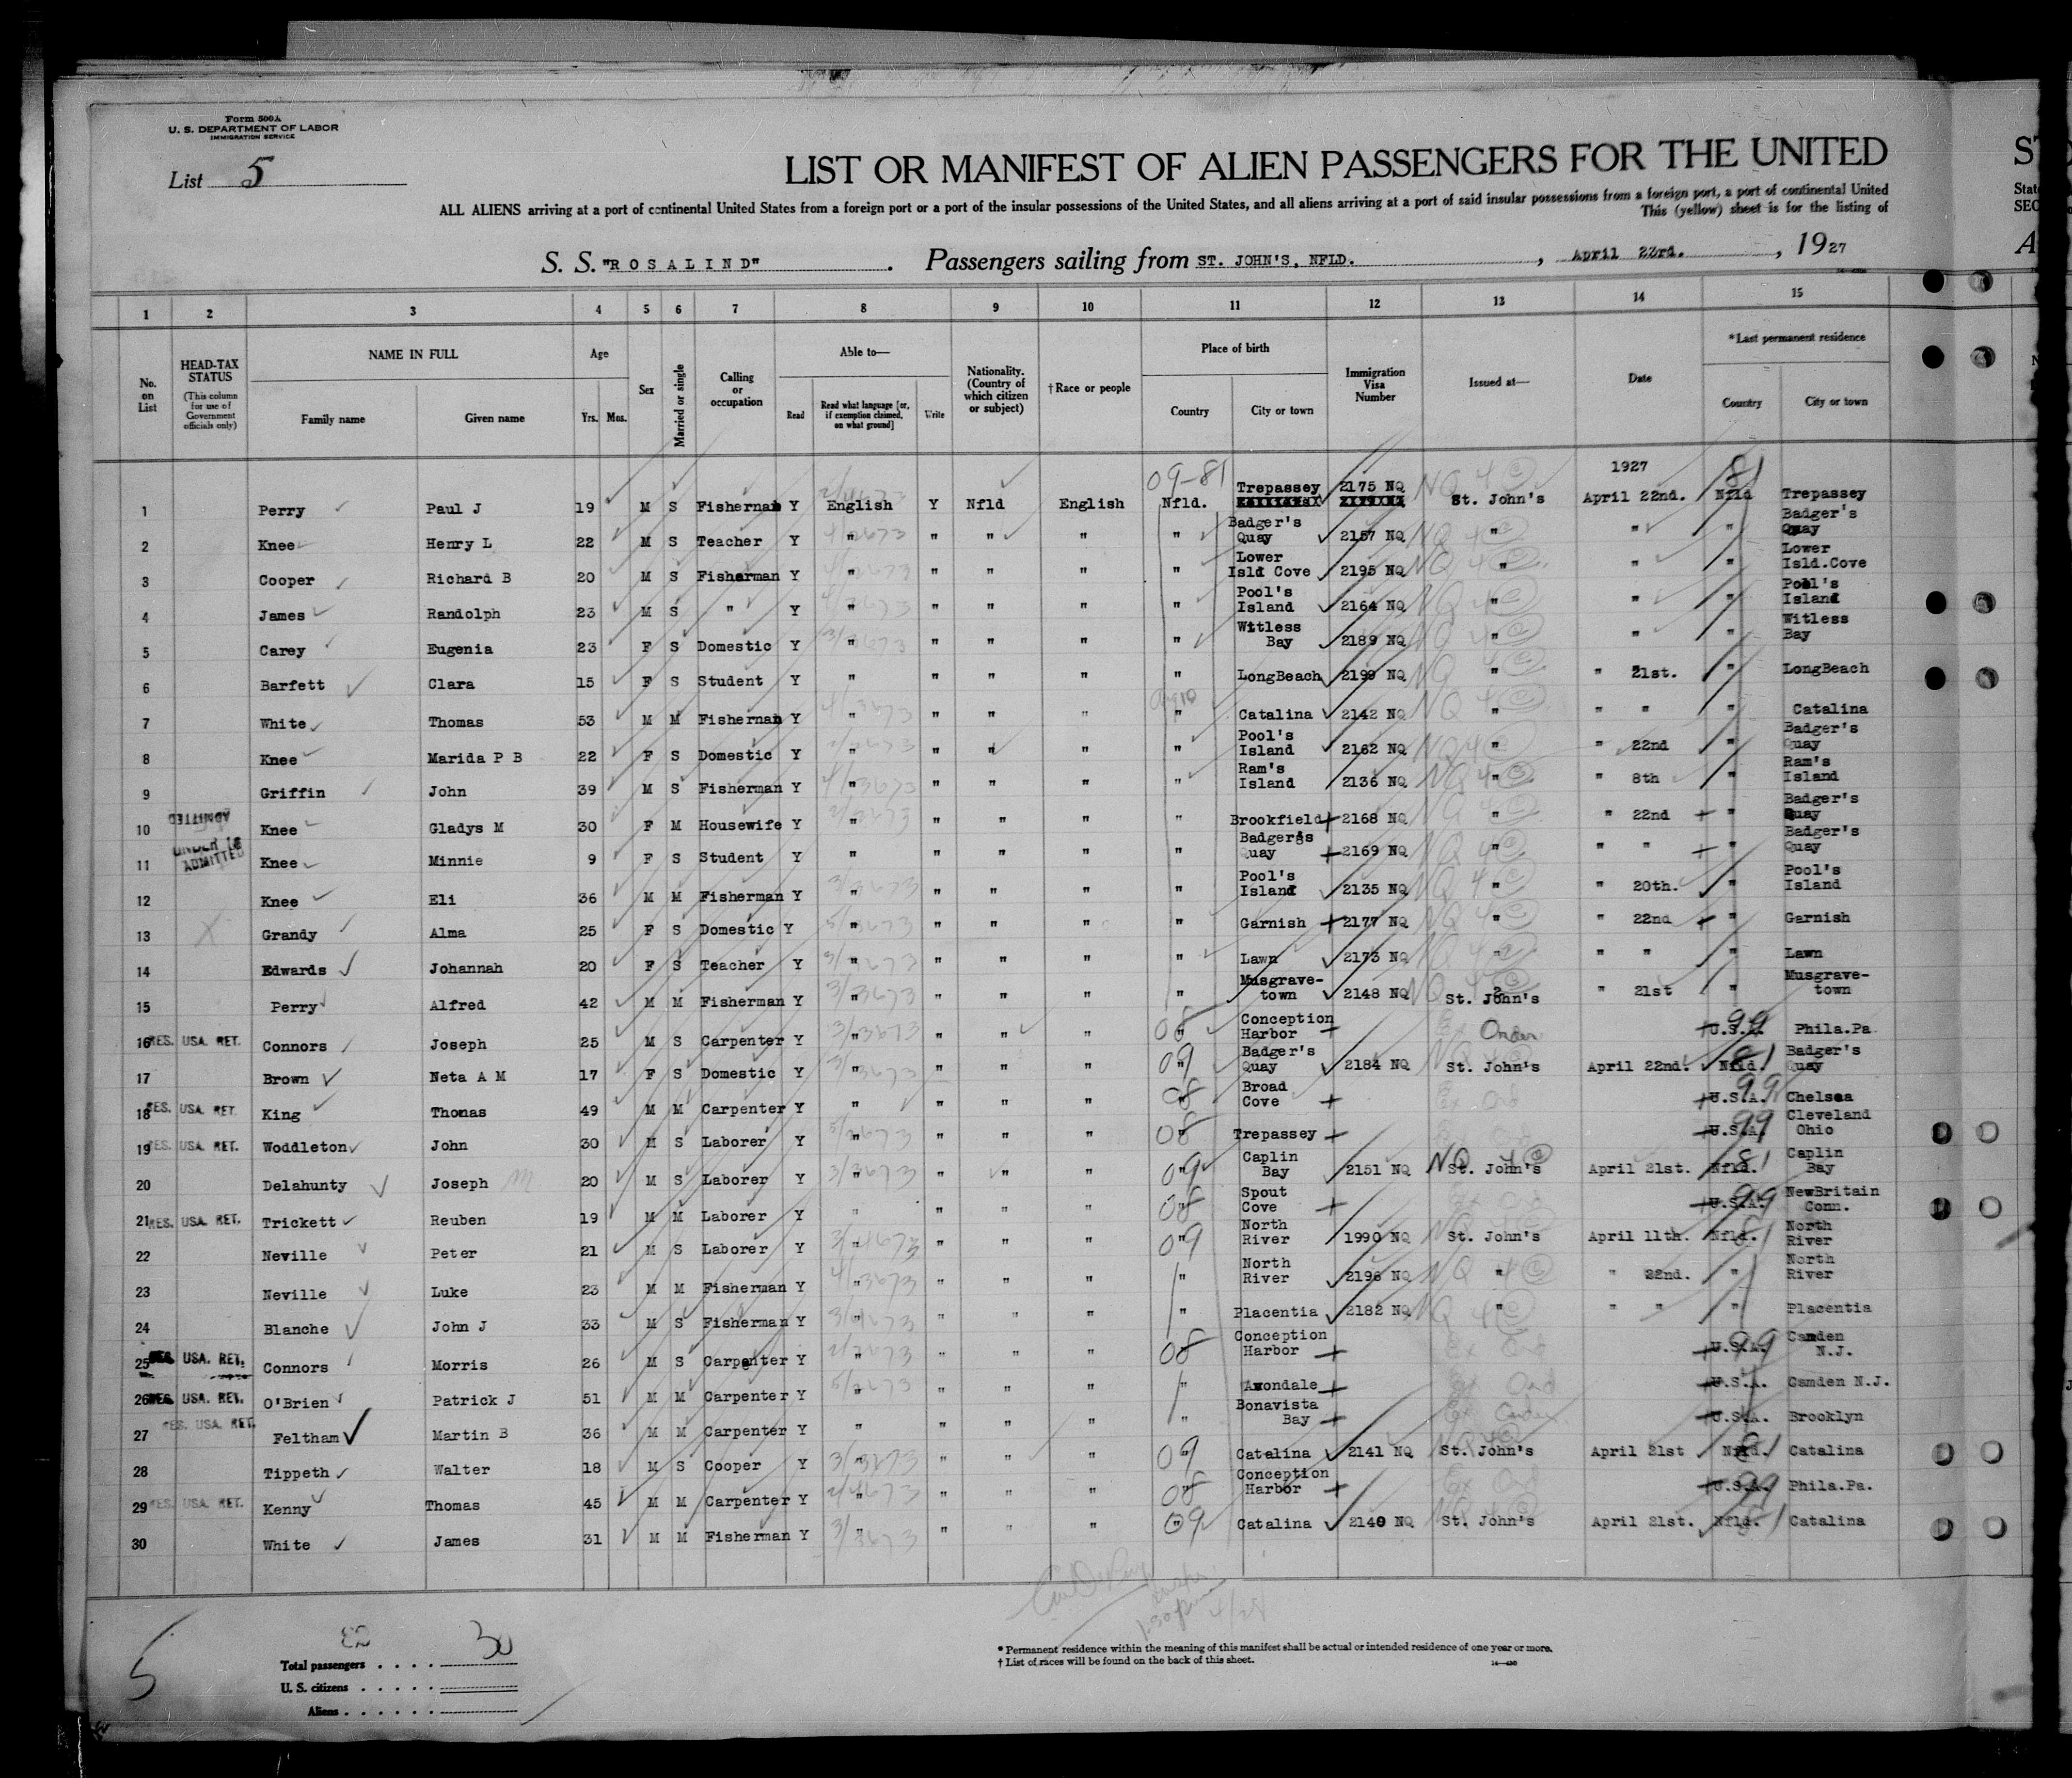 Form 500A
U. S. DEPARTMENT OF LABOR
IMMIGRATION SERVICE
List 5
LIST OR MANIFEST OF ALIEN PASSENGERS FOR THE UNITED
ALL ALIENS arriving at a port of continental United States from a foreign port or a port of the insular possessions of the United States, and all aliens arriving at a port of said insular possessions from a foreign port, a port of continental United
This (yellow) sheet is for the listing of
S. S. "ROSALIND". Passengers sailing from ST. JOHN'S, NFLD., April 23rd., 1927
1 2 3 4 5 6 7 8 9 10 11 12 13 14 15
No. on List
HEAD-TAX STATUS
(This column for use of Government officials only)
NAME IN FULL
Family name Given name
Age
Yrs. Mos.
Sex
Married or single
Calling or occupation
Able to—
Read
Read what language [or, if exemption claimed, on what ground]
Write
Nationality. (Country of which citizen or subject)
†Race or people
Place of birth
Country City or town
Immigration Visa Number
Issued at—
Date
*Last permanent residence
Country City or town
1927
1 Perry Paul J 19 M S Fisherman Y English Y Nfld English 09-81 Nfld. Trepassey 2175 NQ St. John's April 22nd. 81 Nfld Trepassey
2 Knee Henry L 22 M S Teacher Y " " " " " Badger's Quay 2157 NQ " " " Badger's Quay
3 Cooper Richard B 20 M S Fisherman Y " " " " " Lower Isld Cove 2195 NQ " " " Lower Isld.Cove
4 James Randolph 23 M S " Y " " " " " Pool's Island 2164 NQ " " " Pool's Island
5 Carey Eugenia 23 F S Domestic Y " " " " " Witless Bay 2189 NQ " " " Witless Bay
6 Barfett Clara 15 F S Student Y " " " " " LongBeach 2199 NQ " " 21st. " LongBeach
7 White Thomas 53 M M Fisherman Y " " " " " Catalina 2142 NQ " " " " Catalina
8 Knee Marida P B 22 F S Domestic Y " " " " " Pool's Island 2162 NQ " " 22nd " Badger's Quay
9 Griffin John 39 M S Fisherman Y " " " " " Ram's Island 2136 NQ " " 8th " Ram's Island
10 ADMITTED Knee Gladys M 30 F M Housewife Y " " " " " Brookfield 2168 NQ " " 22nd " Badger's Quay
11 UNDER 16 ADMITTED Knee Minnie 9 F S Student Y " " " " " Badger's Quay 2169 NQ " " " " Badger's Quay
12 Knee Eli 36 M M Fisherman Y " " " " " Pool's Island 2135 NQ " " 20th. " Pool's Island
13 Grandy Alma 25 F S Domestic Y " " " " " Garnish 2177 NQ " " 22nd " Garnish
14 Edwards Johannah 20 F S Teacher Y " " " " " Lawn 2173 NQ " " " " Lawn
15 Perry Alfred 42 M M Fisherman Y " " " " " Musgrave-town 2148 NQ St. John's " 21st " Musgrave-town
16 RES. USA. RET. Connors Joseph 25 M S Carpenter Y " " " " 08 " Conception Harbor Ex Order 99 U.S.A. Phila.Pa.
17 Brown Neta A M 17 F S Domestic Y " " " " 09 " Badger's Quay 2184 NQ St. John's April 22nd. 81 Nfld. Badger's Quay
18 RES. USA. RET. King Thomas 49 M M Carpenter Y " " " " 08 " Broad Cove Ex Ord 99 U.S.A. Chelsea
19 RES. USA. RET. Woddleton John 30 M S Laborer Y " " " " 08 " Trepassey 99 U.S.A. Cleveland Ohio
20 Delahunty Joseph M 20 M S Laborer Y " " " " 09 " Caplin Bay 2151 NQ St. John's April 21st. 81 Nfld. Caplin Bay
21 RES. USA. RET. Trickett Reuben 19 M M Laborer Y " " " " 08 " Spout Cove Ex Ord 99 U.S.A. NewBritain Conn.
22 Neville Peter 21 M S Laborer Y " " " " 09 " North River 1990 NQ St. John's April 11th. 81 Nfld. North River
23 Neville Luke 23 M M Fisherman Y " " " " " North River 2196 NQ " " 22nd. " North River
24 Blanche John J 33 M S Fisherman Y " " " " " Placentia 2182 NQ " " " " Placentia
25 RES. USA. RET. Connors Morris 26 M S Carpenter Y " " " " 08 " Conception Harbor Ex Ord 99 U.S.A. Camden N.J.
26 RES. USA. RET. O'Brien Patrick J 51 M M Carpenter Y " " " " " Avondale Ex Ord U.S.A. Camden N.J.
27 RES. USA. RET. Feltham Martin B 36 M M Carpenter Y " " " " " Bonavista Bay Ex Order U.S.A. Brooklyn
28 Tippeth Walter 18 M S Cooper Y " " " " 09 Catalina 2141 NQ St. John's April 21st 81 Nfld. Catalina
29 RES. USA. RET. Kenny Thomas 45 M M Carpenter Y " " " " 08 " Conception Harbor Ex Ord 99 U.S.A. Phila.Pa.
30 White James 31 M M Fisherman Y " " " " 09 " Catalina 2140 NQ St. John's April 21st. 81 Nfld. Catalina
5
Total passengers . . . . 30
U. S. citizens . . . . .
Aliens . . . . . .
* Permanent residence within the meaning of this manifest shall be actual or intended residence of one year or more.
† List of races will be found on the back of this sheet.